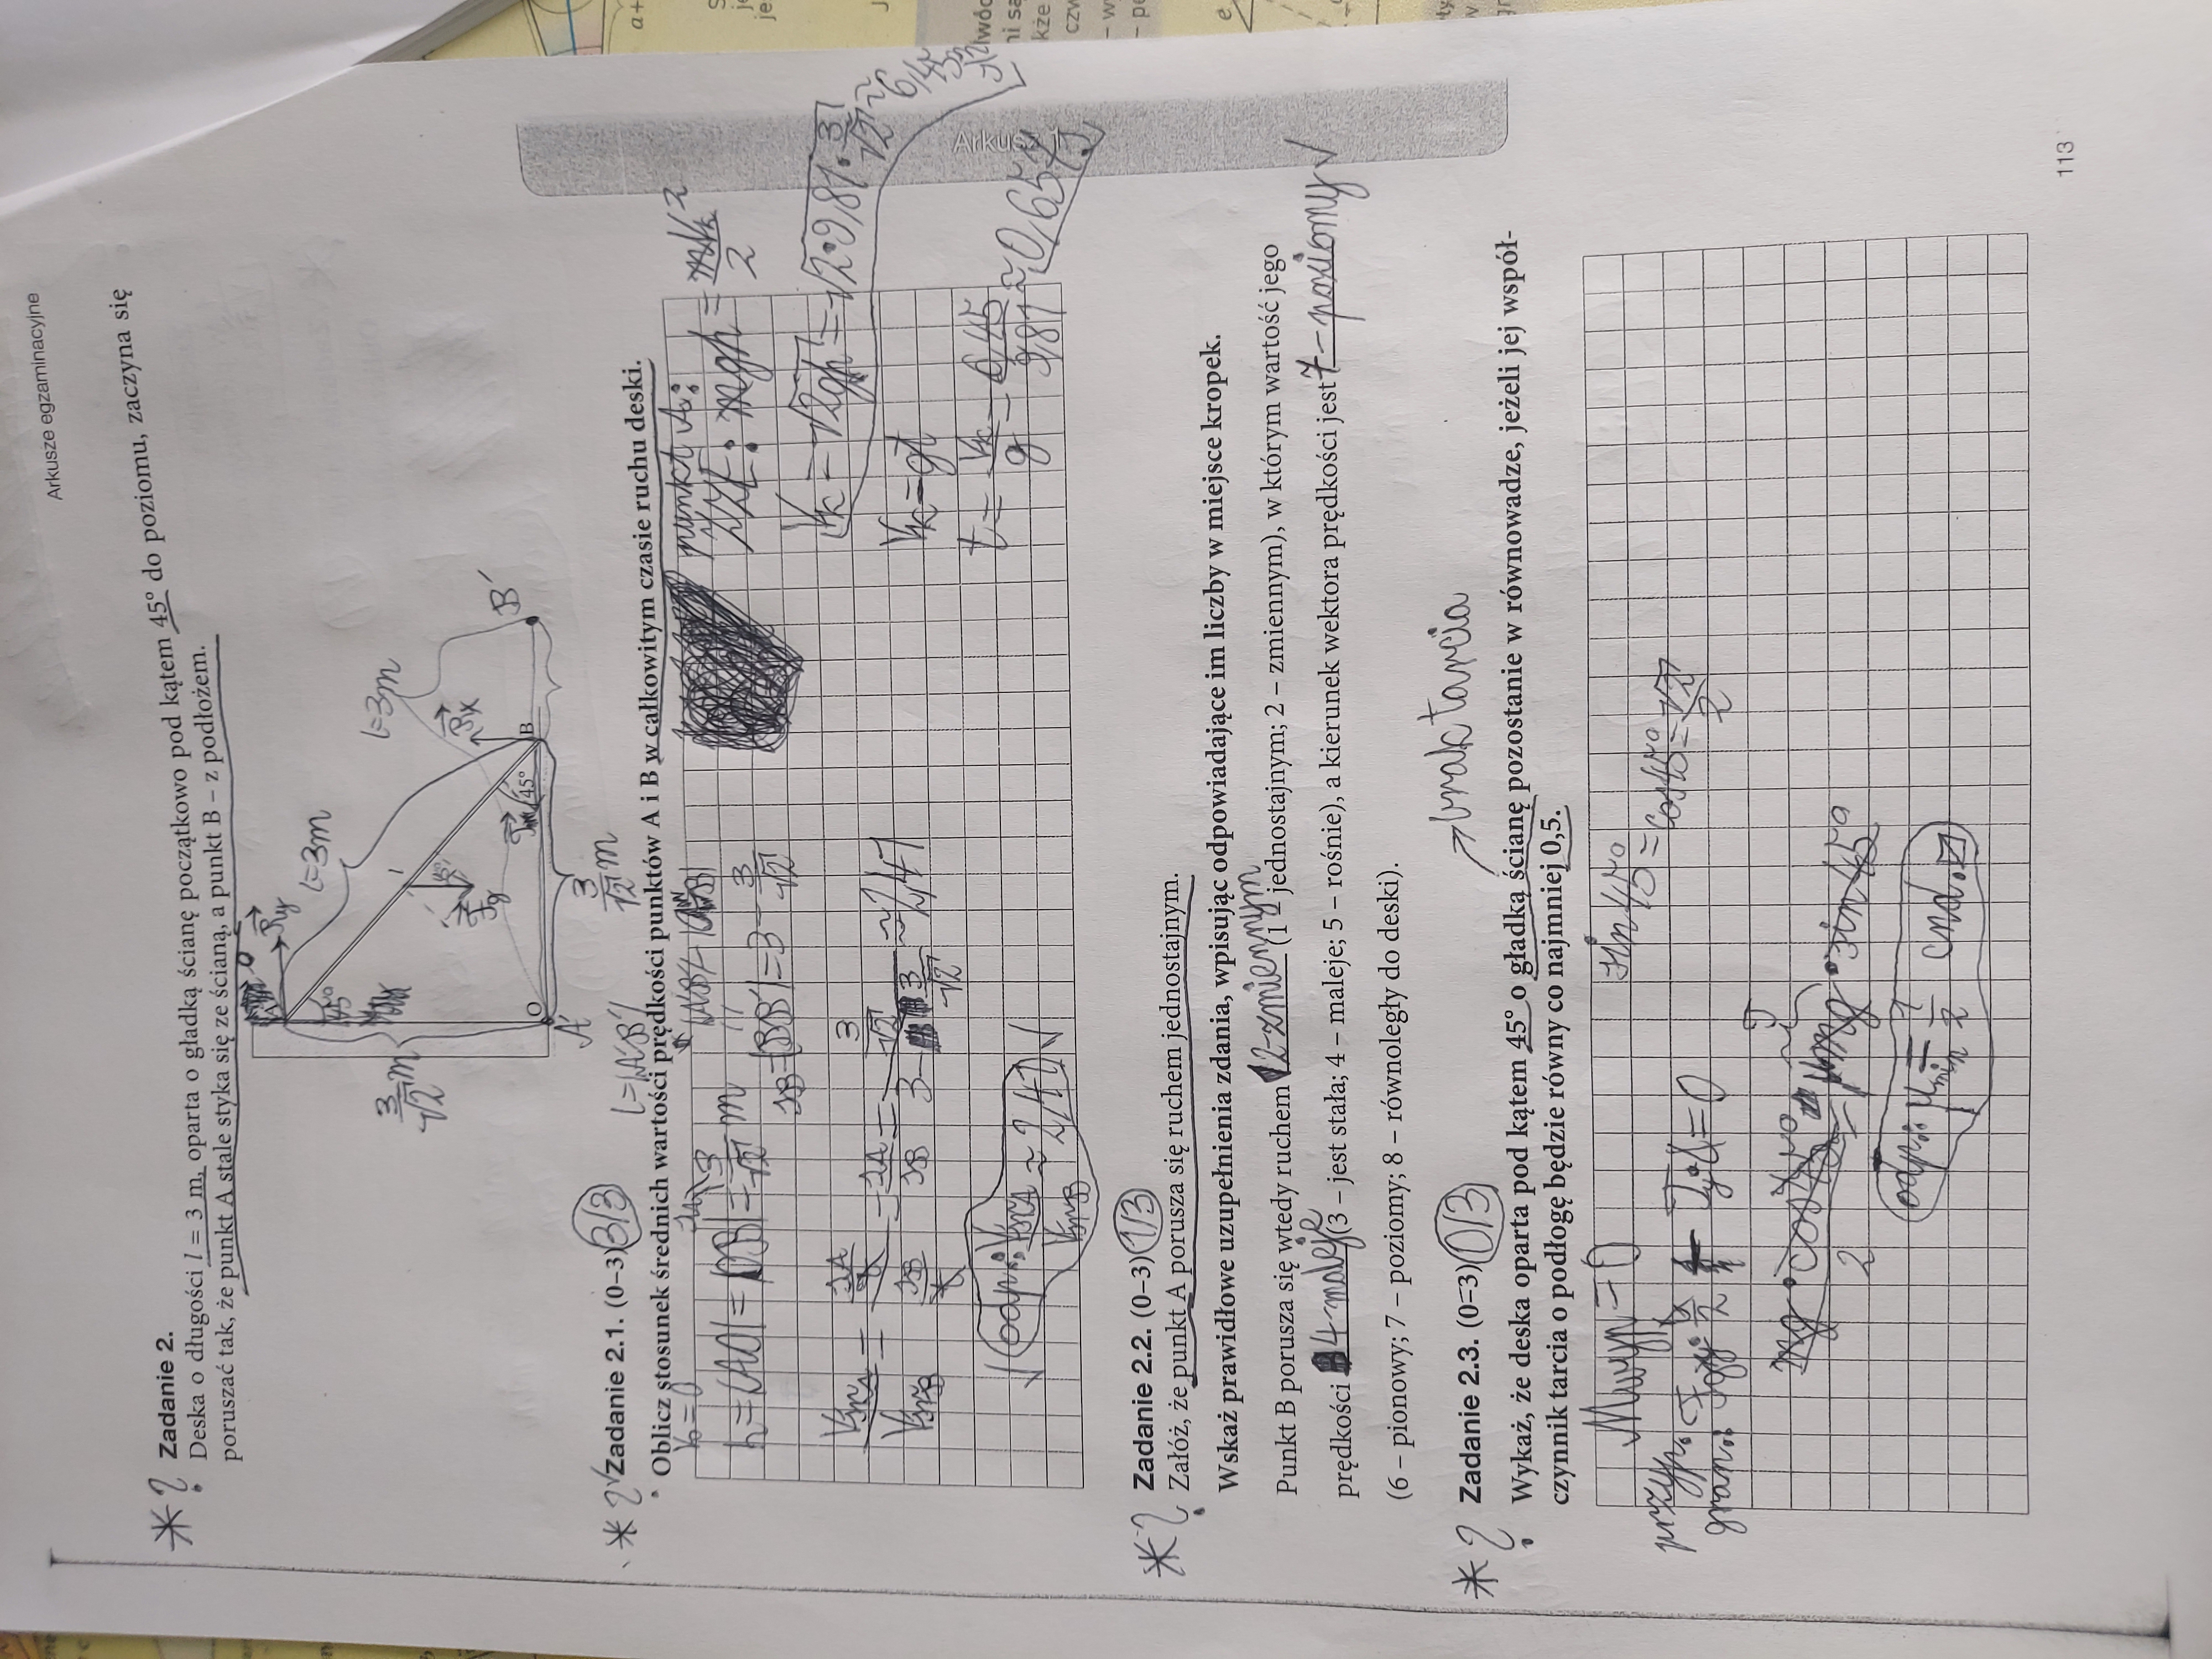 Arkusze egzaminacyjne
* ? Zadanie 2.
Deska o długości l = 3 m, oparta o gładką ścianę początkowo pod kątem 45° do poziomu, zaczyna się
poruszać tak, że punkt A stale styka się ze ścianą, a punkt B – z podłożem.
l=3m
l=3m
45°
3/√2 m
O
B
45°
A'
B'
3/√2 m
l=|A'B'|
* ? √ Zadanie 2.1. (0–3) 3/3
Oblicz stosunek średnich wartości prędkości punktów A i B w całkowitym czasie ruchu deski.
h=|AO|=|OB|=3/√2 m
SB=|BB'|=3-3/√2
punkt A:
mgh = mVk²/2
Vk=√2gh=√2·9,81·3/√2≈
Vk=gt
t=Vk/g=6,45/9,81≈0,65
VśrA/VśrB = SA/t / SB/t = SA/SB = 3/√2 / 3-3/√2 ≈2,41
√ odp.: VśrA/VśrB≈2,41 √
* ? Zadanie 2.2. (0–3) 1/3
Załóż, że punkt A porusza się ruchem jednostajnym.
Wskaż prawidłowe uzupełnienia zdania, wpisując odpowiadające im liczby w miejsce kropek.
Punkt B porusza się wtedy ruchem 2-zmiennym (1 – jednostajnym; 2 – zmiennym), w którym wartość jego
prędkości 4-maleje (3 – jest stała; 4 – maleje; 5 – rośnie), a kierunek wektora prędkości jest 7-poziomy √
(6 – pionowy; 7 – poziomy; 8 – równoległy do deski).
→ brak tarcia
* ? Zadanie 2.3. (0–3) 0/3
Wykaż, że deska oparta pod kątem 45° o gładką ścianę pozostanie w równowadze, jeżeli jej współ-
czynnik tarcia o podłogę będzie równy co najmniej 0,5.
Mwyp=0
sin45°=cos45°=√2/2
przyp.
gran.:
mg·cos45°/2 = μmg·sin45°
odp.: μmin=1/2 cnd.
Arkusz
113